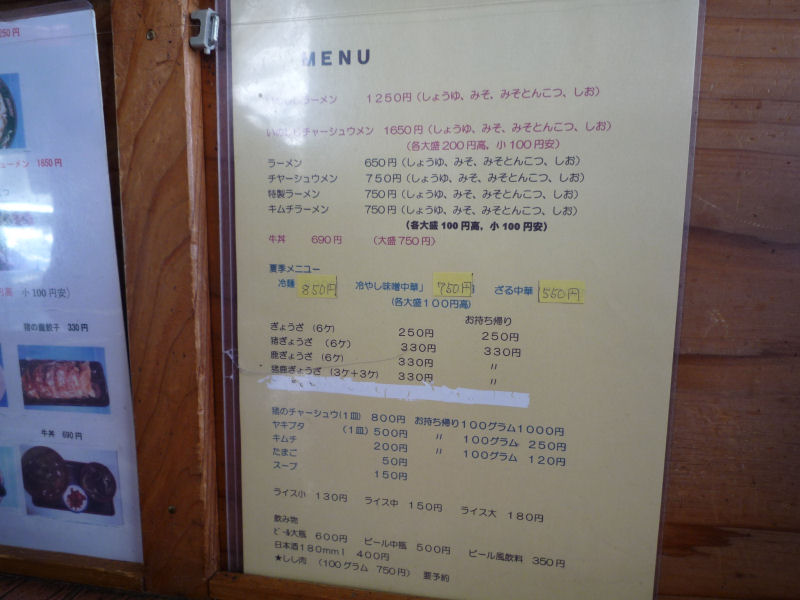 250円
ューメン 1650円
小100円安)
猪の餃子 330円
牛丼 690円
MENU
いのししラーメン 1250円(しょうゆ、みそ、みそとんこつ、しお)
いのししチャーシュウメン 1650円(しょうゆ、みそ、みそとんこつ、しお)
(各大盛200円高、小100円安)
ラーメン 650円(しょうゆ、みそ、みそとんこつ、しお)
チヤーシュウメン 750円(しょうゆ、みそ、みそとんこつ、しお)
特製ラーメン 750円(しょうゆ、みそ、みそとんこつ、しお)
キムチラーメン 750円(しょうゆ、みそ、みそとんこつ、しお)
(各大盛100円高、小100円安)
牛丼 690円 (大盛750円)
夏季メニュー
冷麺 850円 冷やし味噌中華」 750円 ざる中華 550円
(各大盛100円高)
お持ち帰り
ぎょうざ(6ケ) 250円 250円
猪ぎょうざ(6ケ) 330円 330円
鹿ぎょうざ(6ケ) 330円 〃
猪鹿ぎょうざ(3ケ+3ケ) 330円 〃
猪のチャーシュウ(1皿) 800円 お持ち帰り100グラム1000円
ヤキブタ (1皿)500円 〃 100グラム 250円
キムチ 200円 〃 100グラム 120円
たまご 50円
スープ 150円
ライス小 130円 ライス中 150円 ライス大 180円
飲み物
ビール大瓶 600円 ビール中瓶 500円 ビール風飲料 350円
日本酒180mml 400円
★しし肉 (100グラム 750円) 要予約